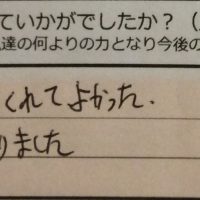 ていかがでしたか？（
達の何よりの力となり今後の
くれてよかった.
りました